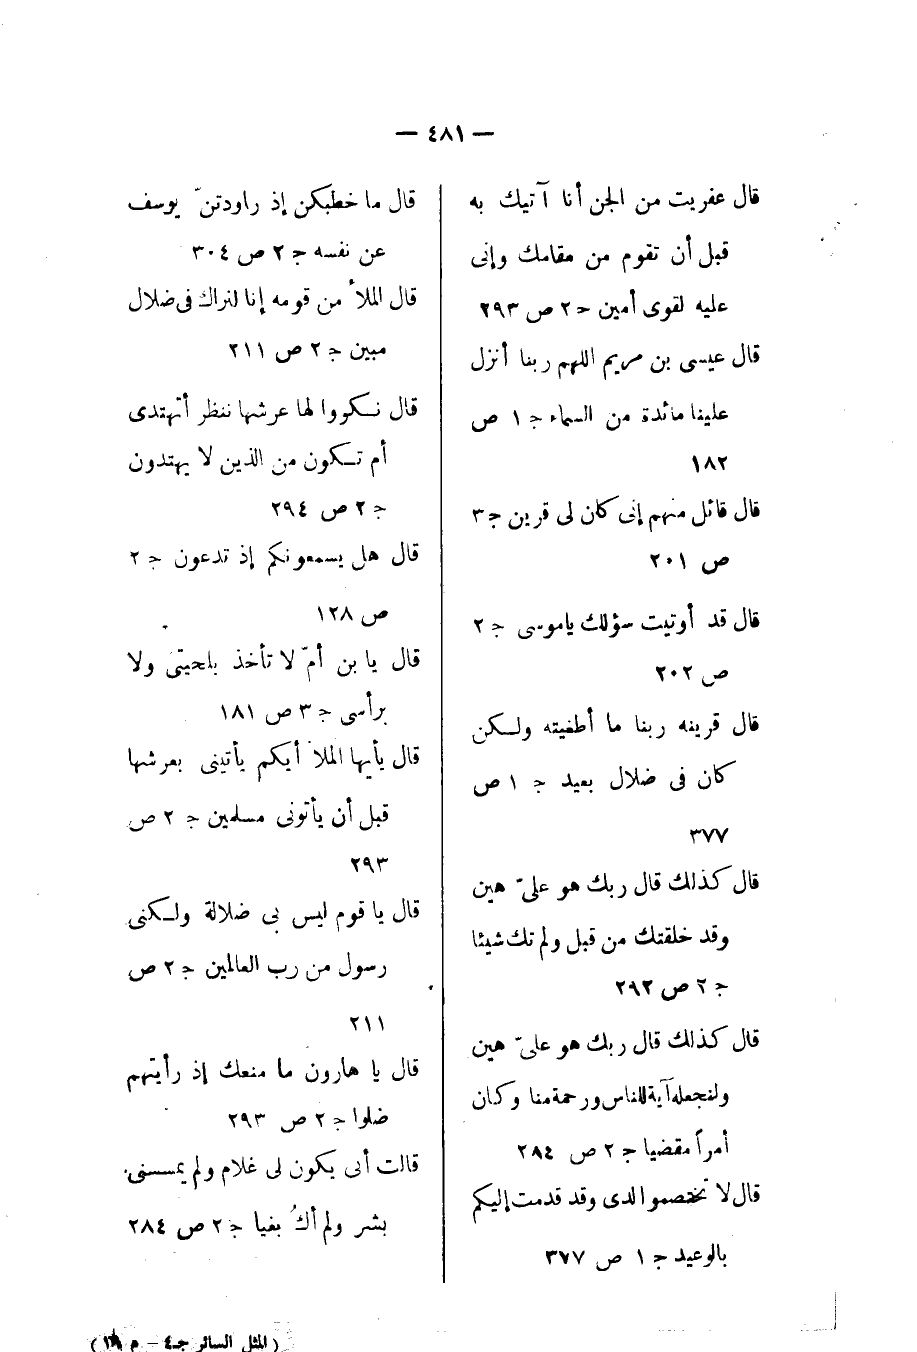 — ٤٨١ —
قال عفريت من الجن أنا آتيك به
قبل أن تقوم من مقامك وإنى
عليه لقوى أمين ج ٢ ص ٢٩٣
قال عيسى بن مريم اللهم ربنا أنزل
علينا مائدة من السماء ج ١ ص
١٨٢
قال قائل منهم إنى كان لى قرين ج ٣
ص ٢٠١
قال قد أوتيت سؤلك ياموسى ج ٢
ص ٢٠٢
قال قرينه ربنا ما أطغيته ولكن
كان فى ضلال بعيد ج ١ ص
٣٧٧
قال كذلك قال ربك هو علىّ هين
وقد خلقتك من قبل ولم تك شيئا
ج ٢ ص ٢٩٢
قال كذلك قال ربك هو علىّ هين
ولنجعله آية للناس ورحمة منا وكان
أمراً مقضيا ج ٢ ص ٢٨٤
قال لا تختصموا لدى وقد قدمت إليكم
بالوعيد ج ١ ص ٣٧٧
قال ما خطبكن إذ راودتنّ يوسف
عن نفسه ج ٢ ص ٣٠٤
قال الملأ من قومه إنا لنراك فى ضلال
مبين ج ٢ ص ٢١١
قال نكروا لها عرشها ننظر أتهتدى
أم تكون من الذين لا يهتدون
ج ٢ ص ٢٩٤
قال هل يسمعونكم إذ تدعون ج ٢
ص ١٢٨
قال يا بن أمّ لا تأخذ بلحيتى ولا
برأسى ج ٣ ص ١٨١
قال يأيها الملأ أيكم يأتينى بعرشها
قبل أن يأتونى مسلمين ج ٢ ص
٢٩٣
قال يا قوم ليس بى ضلالة ولكنى
رسول من رب العالمين ج ٢ ص
٢١١
قال يا هارون ما منعك إذ رأيتهم
ضلوا ج ٢ ص ٢٩٣
قالت أنى يكون لى غلام ولم يمسسنى
بشر ولم أكُ بغيا ج ٢ ص ٢٨٤
( المثل السائر جـ ٤ – م